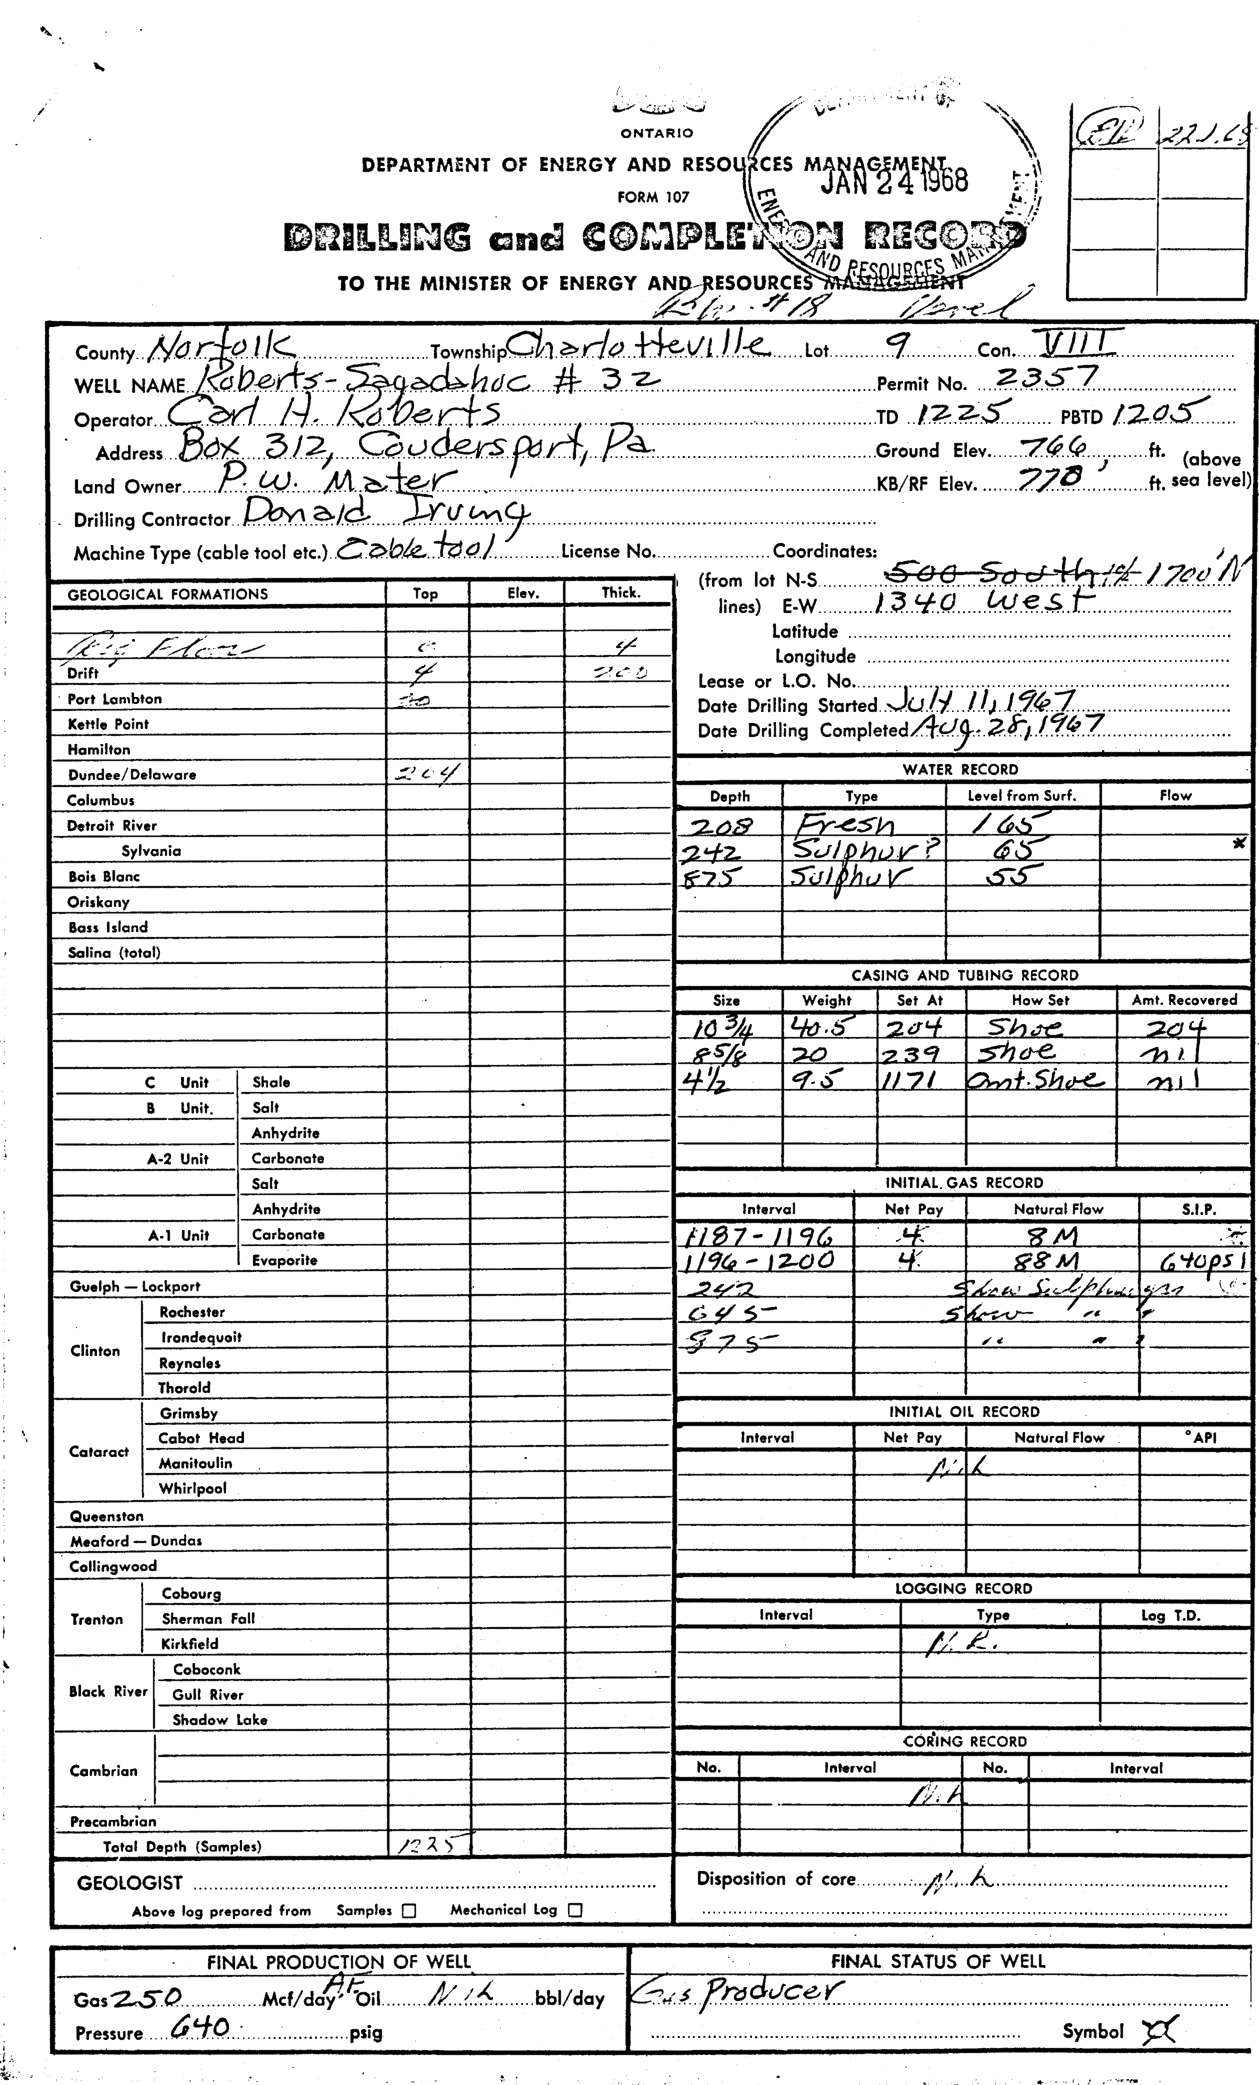 ONTARIO
DEPARTMENT OF ENERGY AND RESOURCES MANAGEMENT
JAN 24 1968
FORM 107
DRILLING and COMPLETION RECORD
ENERGY AND RESOURCES MANAGEMENT
TO THE MINISTER OF ENERGY AND RESOURCES MANAGEMENT
#18
County Norfolk Township Charlotteville Lot 9 Con. VIII
WELL NAME Roberts-Sagadahoc # 32 Permit No. 2357
Operator Carl H. Roberts TD 1225 PBTD 1205
Address Box 312, Coudersport, Pa. Ground Elev. 766 ft. (above
Land Owner P.W. Mater KB/RF Elev. 770 ft. sea level)
Drilling Contractor Donald Irving
Machine Type (cable tool etc.) Cable tool License No. Coordinates:
(from lot N-S 500 South 1700'N
lines) E-W 1340 West
Latitude
Longitude
Lease or L.O. No.
Date Drilling Started July 11, 1967
Date Drilling Completed Aug. 28, 1967
GEOLOGICAL FORMATIONS Top Elev. Thick.
Rig Floor 0 4
Drift 4 200
Port Lambton
Kettle Point
Hamilton
Dundee/Delaware 204
Columbus
Detroit River
Sylvania
Bois Blanc
Oriskany
Bass Island
Salina (total)
C Unit Shale
B Unit. Salt
Anhydrite
A-2 Unit Carbonate
Salt
Anhydrite
A-1 Unit Carbonate
Evaporite
Guelph — Lockport
Clinton
Rochester
Irondequoit
Reynales
Thorold
Cataract
Grimsby
Cabot Head
Manitoulin
Whirlpool
Queenston
Meaford — Dundas
Collingwood
Trenton
Cobourg
Sherman Fall
Kirkfield
Black River
Coboconk
Gull River
Shadow Lake
Cambrian
Precambrian
Total Depth (Samples) 1225
GEOLOGIST
Above log prepared from Samples ☐ Mechanical Log ☐
WATER RECORD
Depth Type Level from Surf. Flow
208 Fresh 165
242 Sulphur? 65 *
875 Sulphur 55
CASING AND TUBING RECORD
Size Weight Set At How Set Amt. Recovered
10 3/4 40.5 204 Shoe 204
8 5/8 20 239 Shoe nil
4 1/2 9.5 1171 Cmt. Shoe nil
INITIAL GAS RECORD
Interval Net Pay Natural Flow S.I.P.
1187-1196 4 8M
1196-1200 4 88M 640psi
242 Show Sulphur gas
645 Show " "
875 " " "
INITIAL OIL RECORD
Interval Net Pay Natural Flow °API
Nil
LOGGING RECORD
Interval Type Log T.D.
N.R.
CORING RECORD
No. Interval No. Interval
Nil
Disposition of core Nil
FINAL PRODUCTION OF WELL
Gas 250 Mcf/day A.F. Oil Nil bbl/day
Pressure 640 psig
FINAL STATUS OF WELL
Gas Producer
Symbol